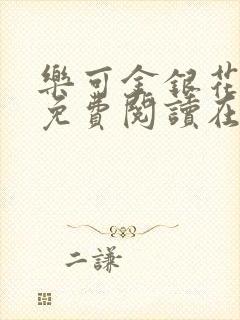 樂可金銀花
免費閱讀在
二謙